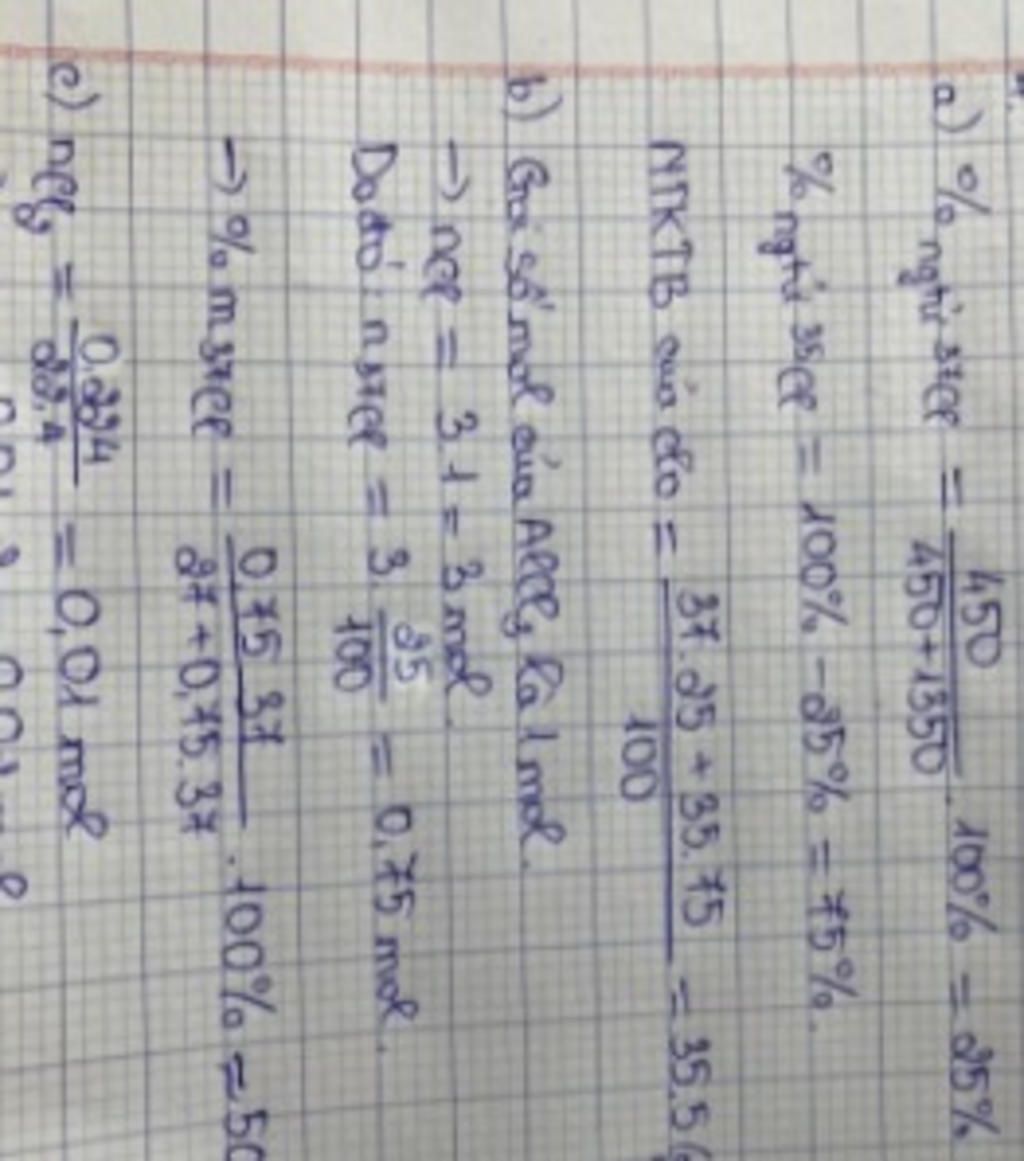 a) % ngtử 37Cl = 450 / (450+1350) . 100% = 25%
% ngtử 35Cl = 100% - 25% = 75%.
NTKTB của clo = (37.25 + 35.75) / 100 = 35.5
b) Gọi số mol của AlCl3 là 1 mol.
→ nCl = 3.1 = 3 mol.
Do đó: n 37Cl = 3. 25/100 = 0,75 mol.
→ % m 37Cl = (0,75.37) / (27+0,75.37) . 100% = 50
c) nCl2 = 0,224 / 22,4 = 0,01 mol